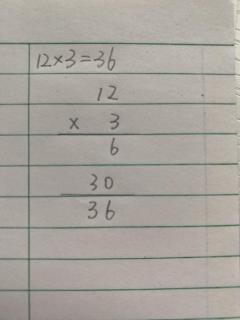 12×3=36
12
× 3
6
30
36